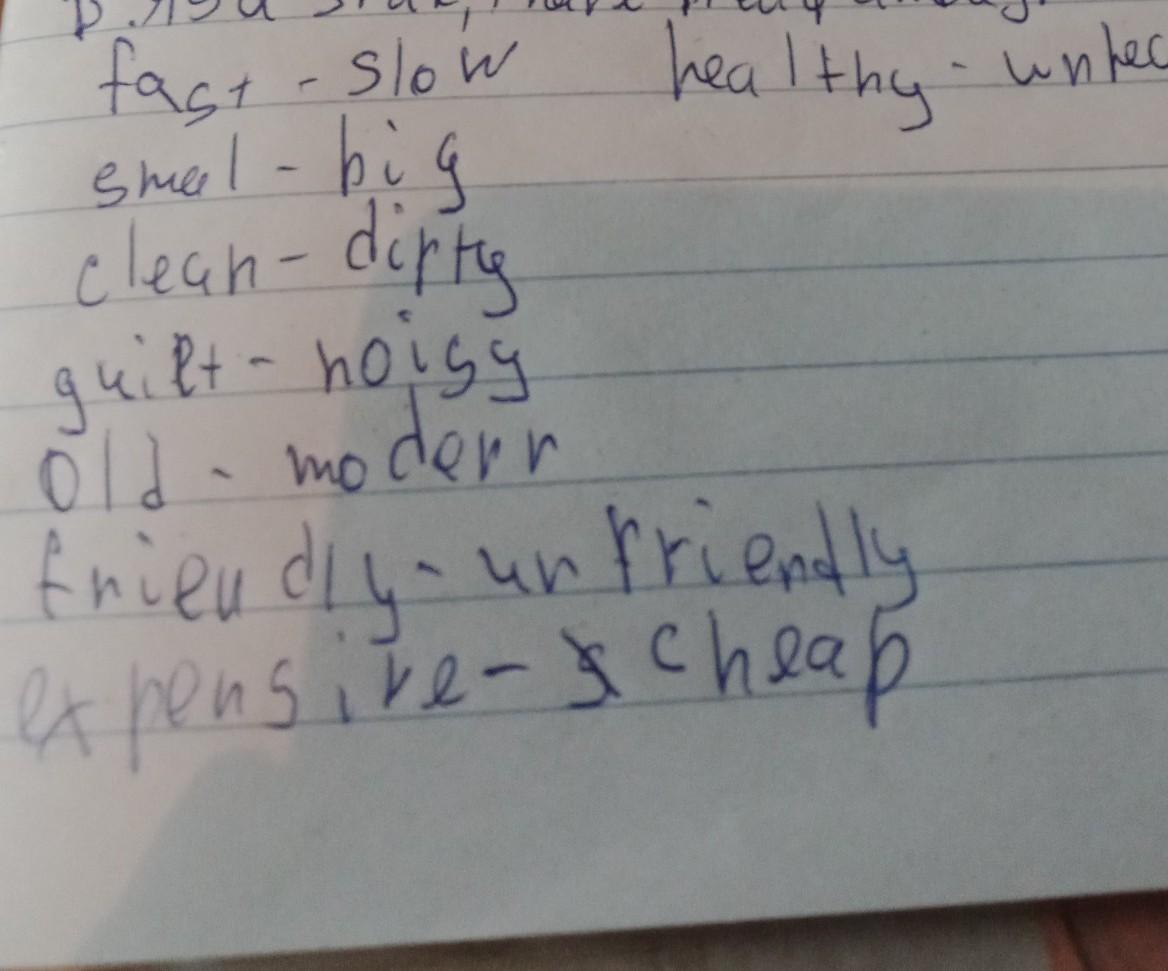 fast - slow healthy - unhea
smal - big
clean - dirty
guilt - noisy
old - modern
friendly - unfriendly
expensive - cheap